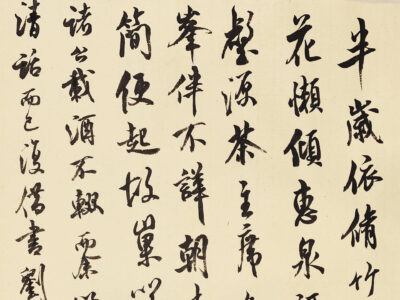 半歲依脩竹
花懶傾惠泉
壑源茶主席
峯伴不詳朝
簡便起故巢
諸公載酒不輟而余
清話而已復借書劉